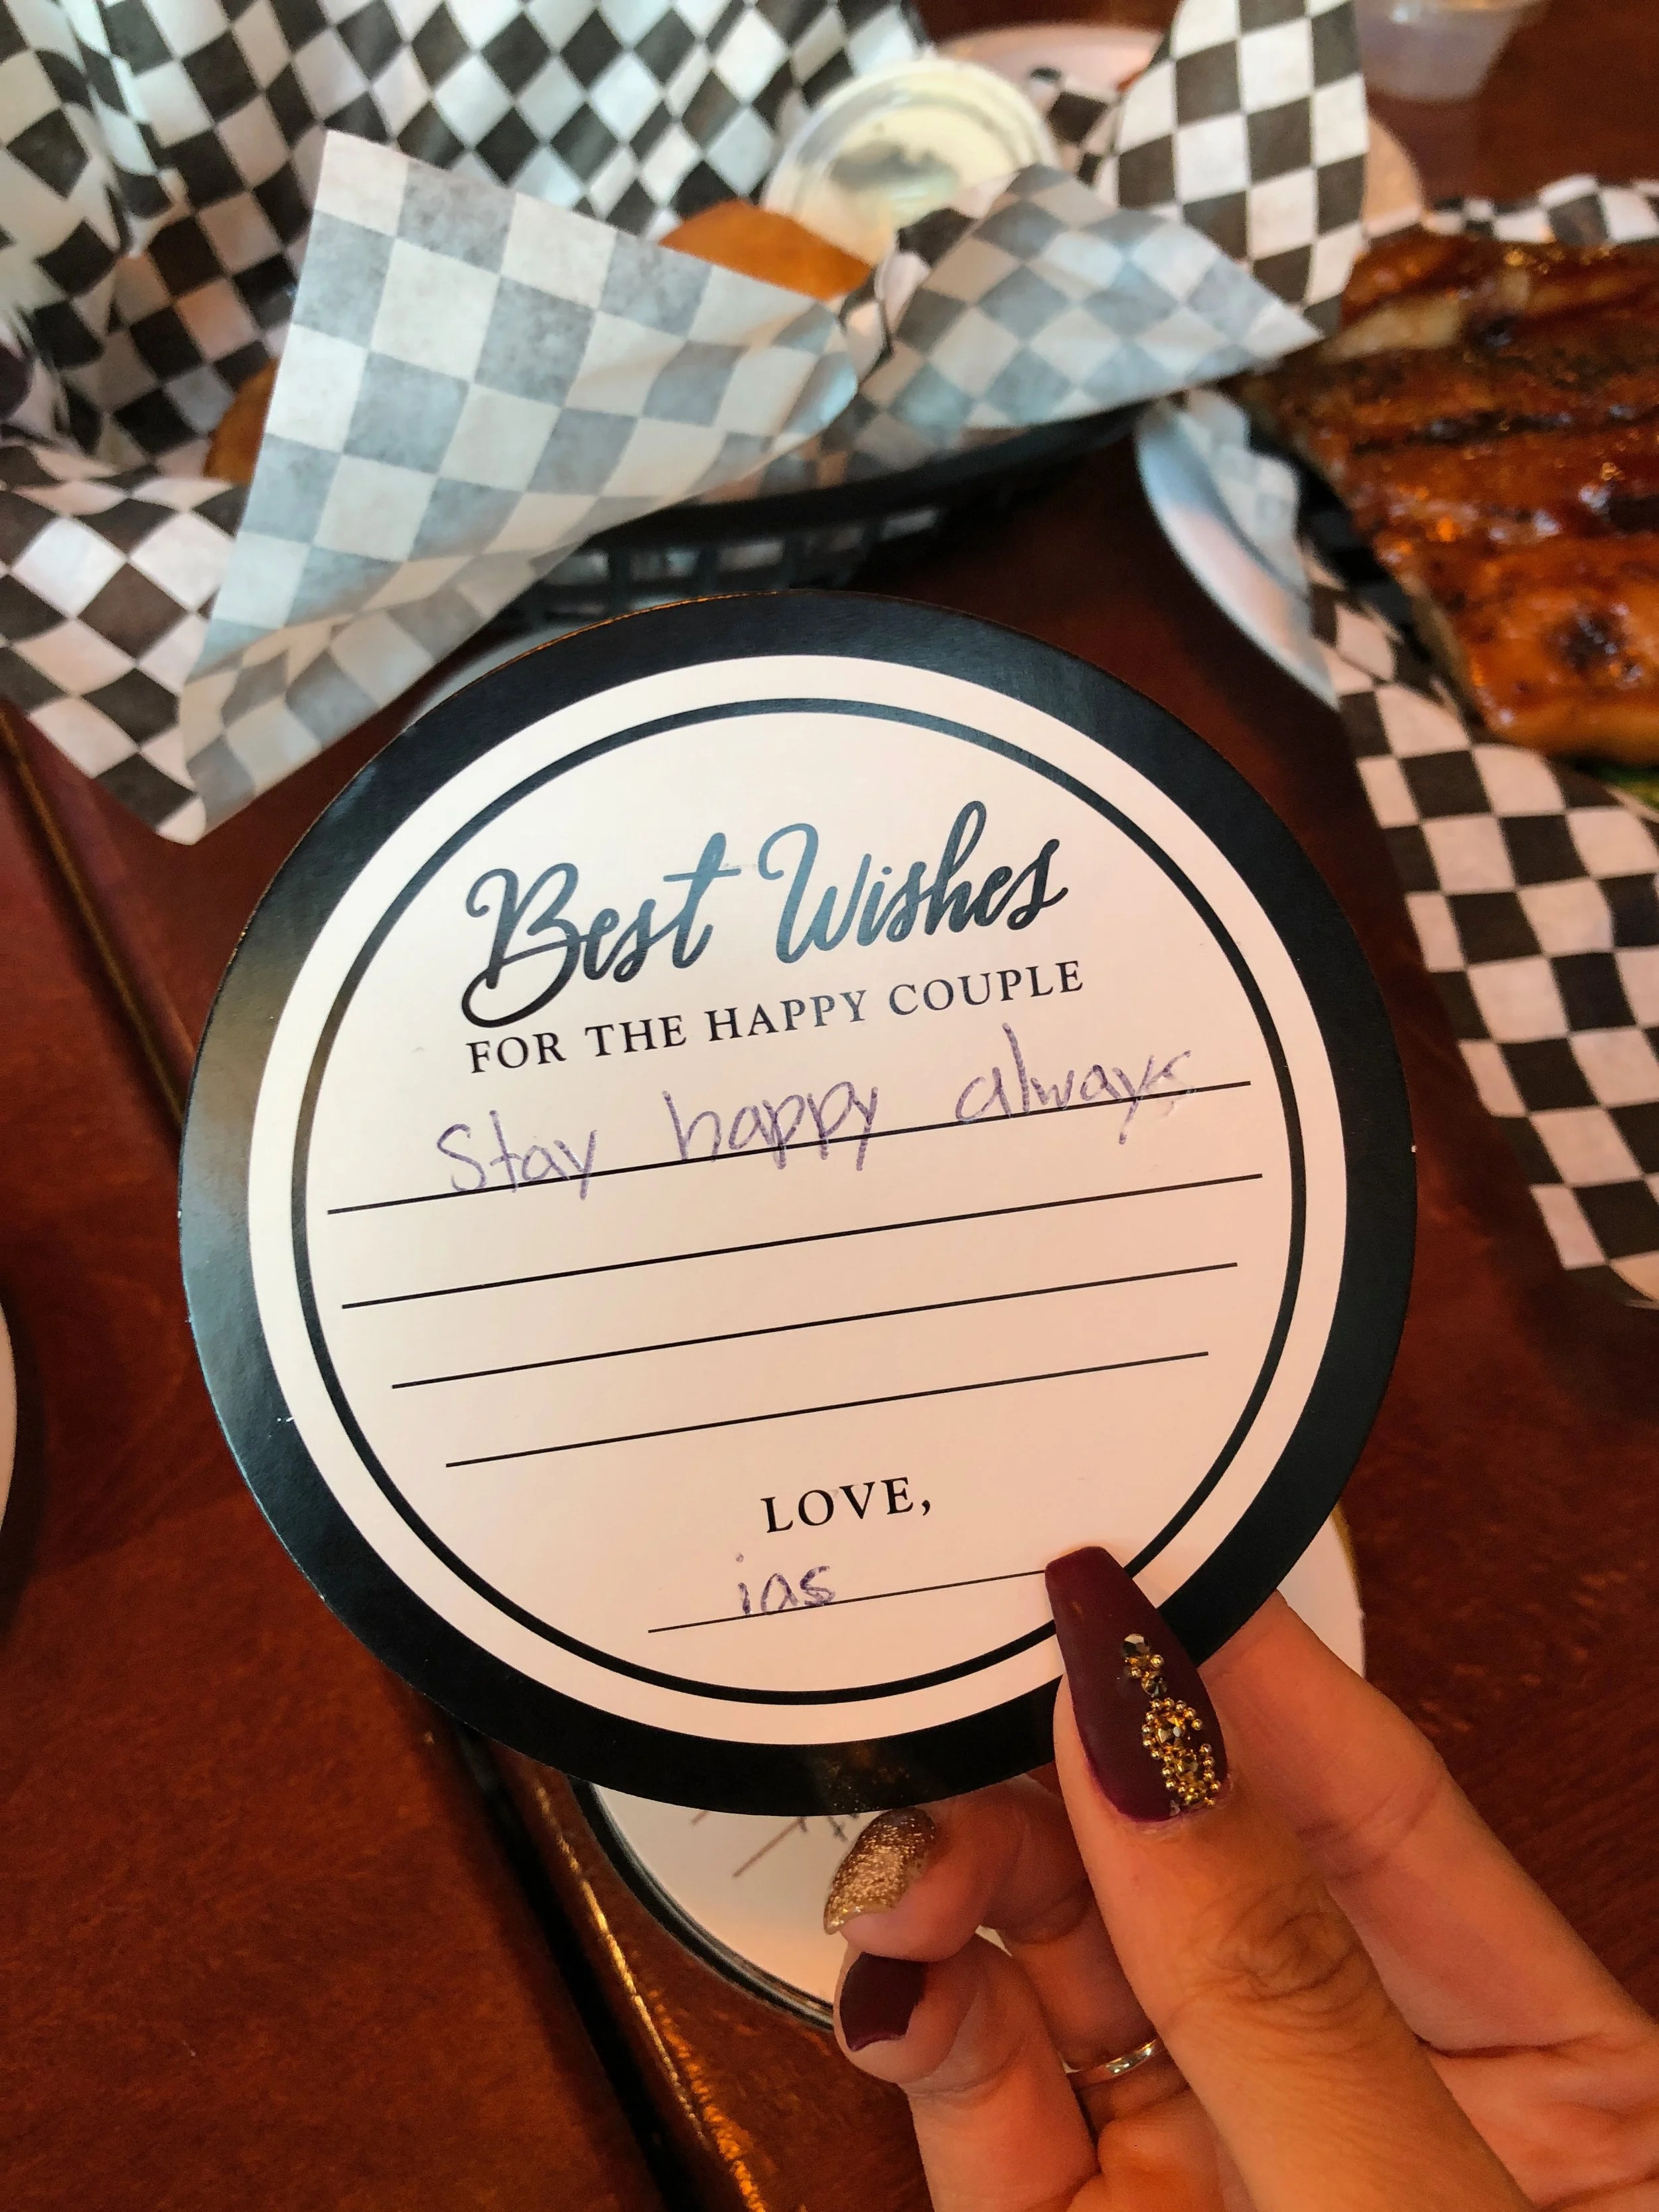 Best Wishes
FOR THE HAPPY COUPLE
Stay happy always
LOVE,
ias